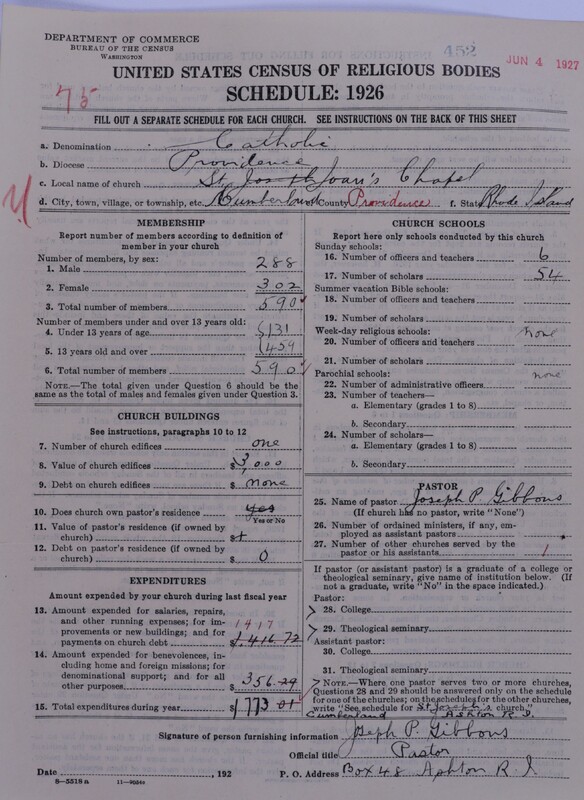 DEPARTMENT OF COMMERCE
BUREAU OF THE CENSUS
WASHINGTON
452
JUN 4 1927
UNITED STATES CENSUS OF RELIGIOUS BODIES
SCHEDULE: 1926
75
FILL OUT A SEPARATE SCHEDULE FOR EACH CHURCH. SEE INSTRUCTIONS ON THE BACK OF THIS SHEET
a. Denomination Catholic
b. Diocese Providence
c. Local name of church St. Joan's Chapel
d. City, town, village, or township, etc. Cumberland County Providence f. State Rhode Island
MEMBERSHIP
Report number of members according to definition of member in your church
Number of members, by sex:
1. Male 288
2. Female 302
3. Total number of members 590
Number of members under and over 13 years old:
4. Under 13 years of age 131
5. 13 years old and over 459
6. Total number of members 590
NOTE.—The total given under Question 6 should be the same as the total of males and females given under Question 3.
CHURCH BUILDINGS
See instructions, paragraphs 10 to 12
7. Number of church edifices one
8. Value of church edifices $3,000
9. Debt on church edifices $ none
10. Does church own pastor's residence? yes
Yes or No
11. Value of pastor's residence (if owned by church) $
12. Debt on pastor's residence (if owned by church) $ 0
EXPENDITURES
Amount expended by your church during last fiscal year
13. Amount expended for salaries, repairs, and other running expenses; for improvements or new buildings; and for payments on church debt 1417 $1,416 72
14. Amount expended for benevolences, including home and foreign missions; for denominational support; and for all other purposes $356.29
15. Total expenditures during year $1773 01
CHURCH SCHOOLS
Report here only schools conducted by this church
Sunday schools:
16. Number of officers and teachers 6
17. Number of scholars 54
Summer vacation Bible schools:
18. Number of officers and teachers
19. Number of scholars
Week-day religious schools: none
20. Number of officers and teachers
21. Number of scholars
Parochial schools: none
22. Number of administrative officers
23. Number of teachers—
a. Elementary (grades 1 to 8)
b. Secondary
24. Number of scholars—
a. Elementary (grades 1 to 8)
b. Secondary
PASTOR
25. Name of pastor Joseph P. Gibbons
(If church has no pastor, write "None")
26. Number of ordained ministers, if any, employed as assistant pastors
27. Number of other churches served by the pastor or his assistants 1
If pastor (or assistant pastor) is a graduate of a college or theological seminary, give name of institution below. (If not a graduate, write "No" in the space indicated.)
Pastor:
28. College
29. Theological seminary
Assistant pastor:
30. College
31. Theological seminary
NOTE—Where one pastor serves two or more churches, Questions 28 and 29 should be answered only on the schedule for one of the churches; on the schedules for the other churches, write "See schedule for St. Joseph's church."
Cumberland Ashton R.I.
Signature of person furnishing information Joseph P. Gibbons
Official title Pastor
Date , 192 P. O. Address Box 48 Ashton R I
8—5518 a